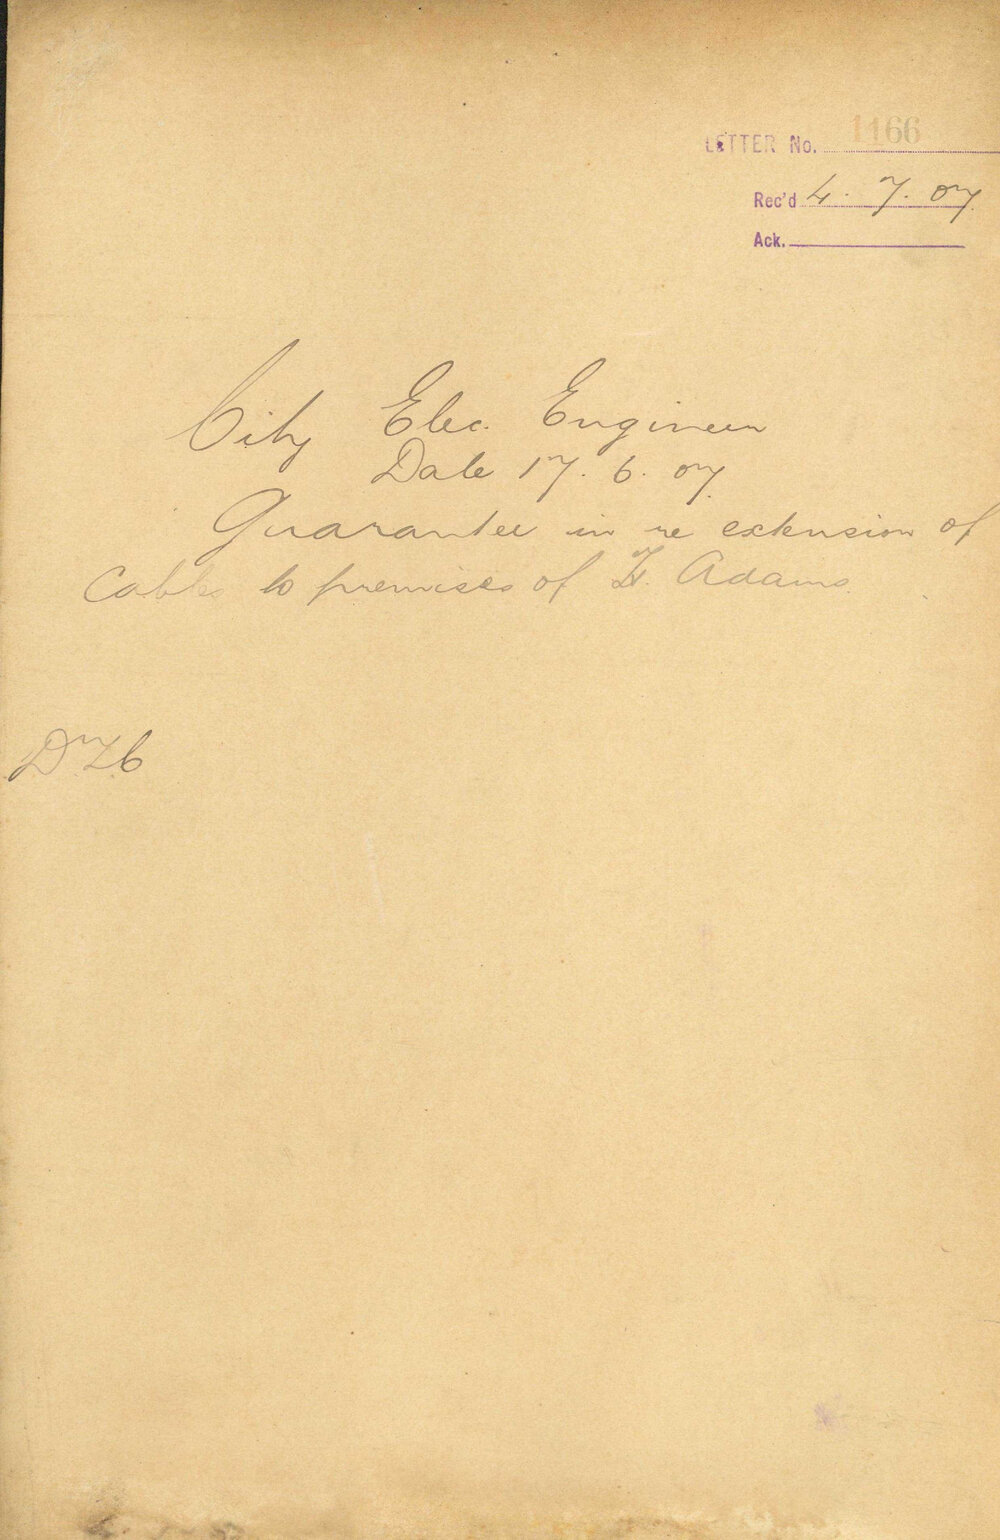 LETTER No. 1166
Rec'd 4. 7. 07.
Ack.
City Elec. Engineer
Date 17. 6. 07.
Guarantee in re extension of
Cables to premises of F. Adams